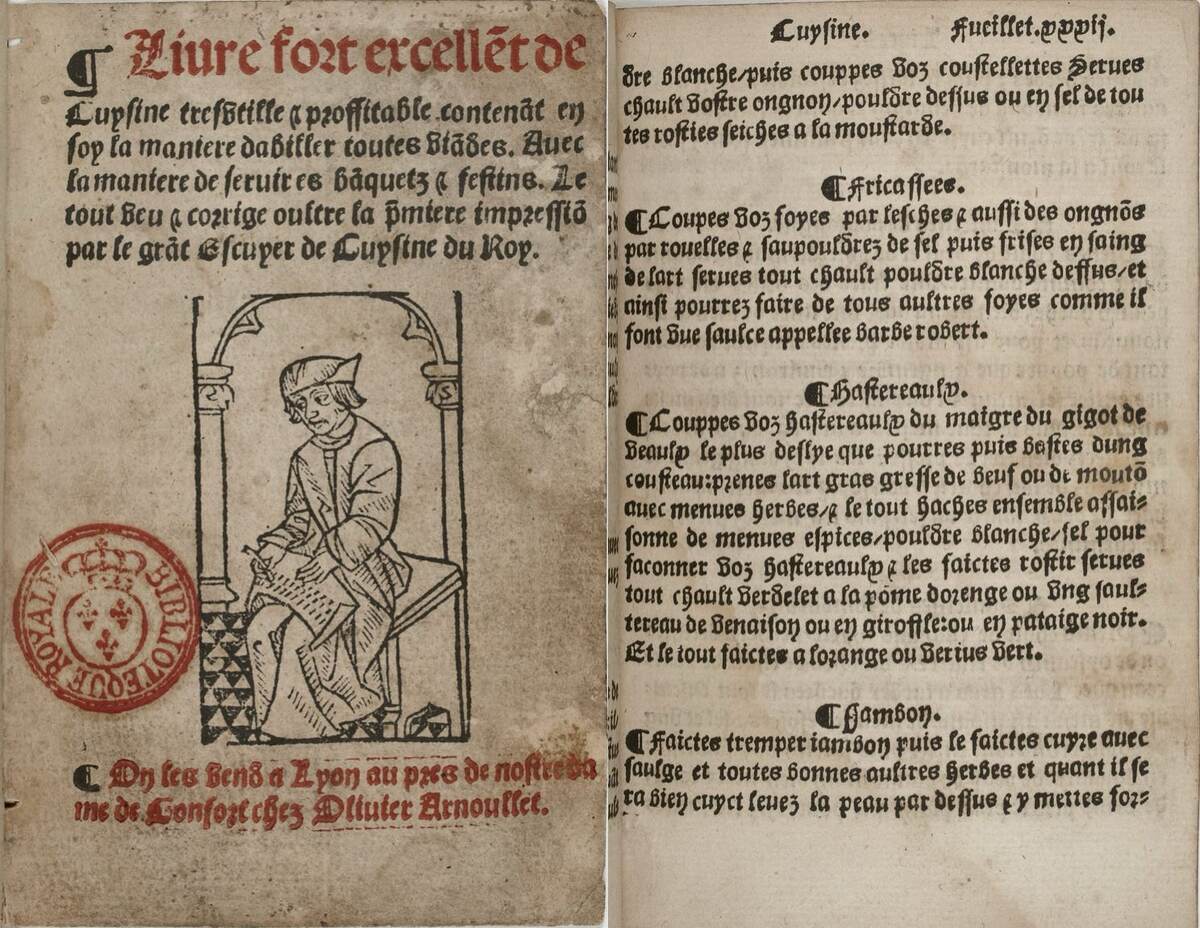 ¶ Liure fort excellēt de
Cuysine tresvtille ⁊ proffitable contenāt en
soy la maniere dabiller toutes viādes. Auec
la maniere de seruir es bāquetz ⁊ festins. Le
tout veu ⁊ corrige oultre la p̄miere impressiō
par le grāt Escuyer de Cuysine du Roy.
BIBLIOTEQUE ROYALE
¶ On les vend a Lyon au pres de nostre da
me de Confort chez Oliuier Arnoullet.
Cuysine. Fueillet.xxxij.
dre blanche/puis couppes voz coustellettes Serues
chault vostre ongnon/pouldre dessus ou en sel de tou
tes rosties seiches a la moustarde.
¶Fricassees.
¶Coupes voz foyes par lesches ⁊ aussi des ongnōs
par rouelles ⁊ saupouldrez de sel puis frises en saing
de lart serues tout chault pouldre blanche dessus/et
ainsi pourrez faire de tous aultres foyes comme il
font vue saulce appellee barbe robert.
¶Hastereaulx.
¶Couppes voz hastereaulx du maigre du gigot de
veaulx le plus deslye que pourres puis bastes dung
cousteau:prenes lart gras gresse de beuf ou de moutō
auec menues herbes/⁊ le tout haches ensemble assai-
sonne de menues espices/pouldre blanche/sel pour
faconner voz hastereaulx ⁊ les faictes rostir serues
tout chault verdelet a la pōme dorenge ou vng saul-
tereau de venaison ou en giroffle:ou en pataige noir.
Et le tout faictes a lorange ou verius vert.
¶Jambon.
¶Faictes tremper iambon puis le faictes cuyre auec
saulge et toutes bonnes aultres herbes et quant il se
ra bien cuyct leuez la peau par dessus ⁊ y mettes for-